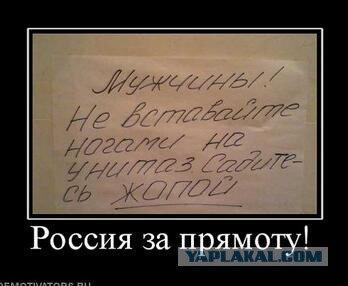 Мужчины!
Не вставайте
ногами на
унитаз. Садите-
сь жопой
Россия за прямоту!
YAPLAKAL.COM
DEMOTIVATORS.RU